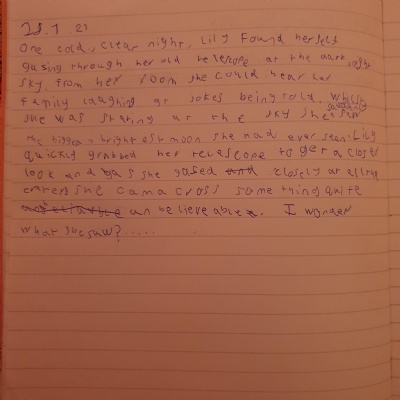 25.1 21
One cold, clear night, Lily found herself
gazing through her old telescope at the dark night
sky. From her room she could hear her
family laughing at jokes being told. While
she was staring at the sky she suddenly saw
the biggest brightest moon she had ever seen. Lily
quickly grabbed her telescope to get a closer
look and as she gased and closely at all the
craters she came across something quite
un believe able. I wonder
what she saw?.....